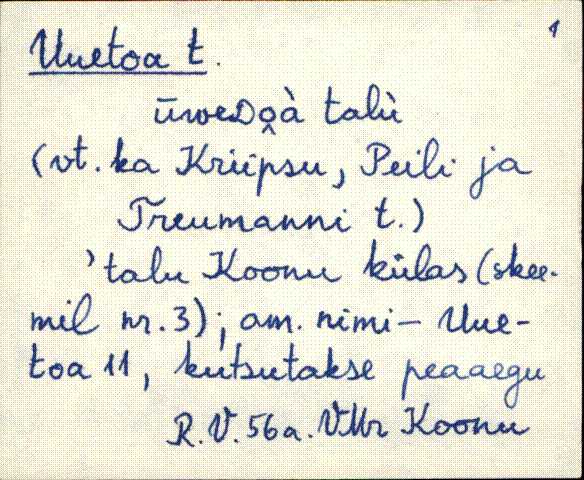 1
Uuetoa t.
ūweᴅo̭à talù
(vt. ka Kriipsu, Peili ja
Treumanni t.)
'talu Koonu külas (skee-
mil nr. 3); am. nimi – Uue-
toa 11, kutsutakse peaaegu
R.V. 56a. VMr Koonu